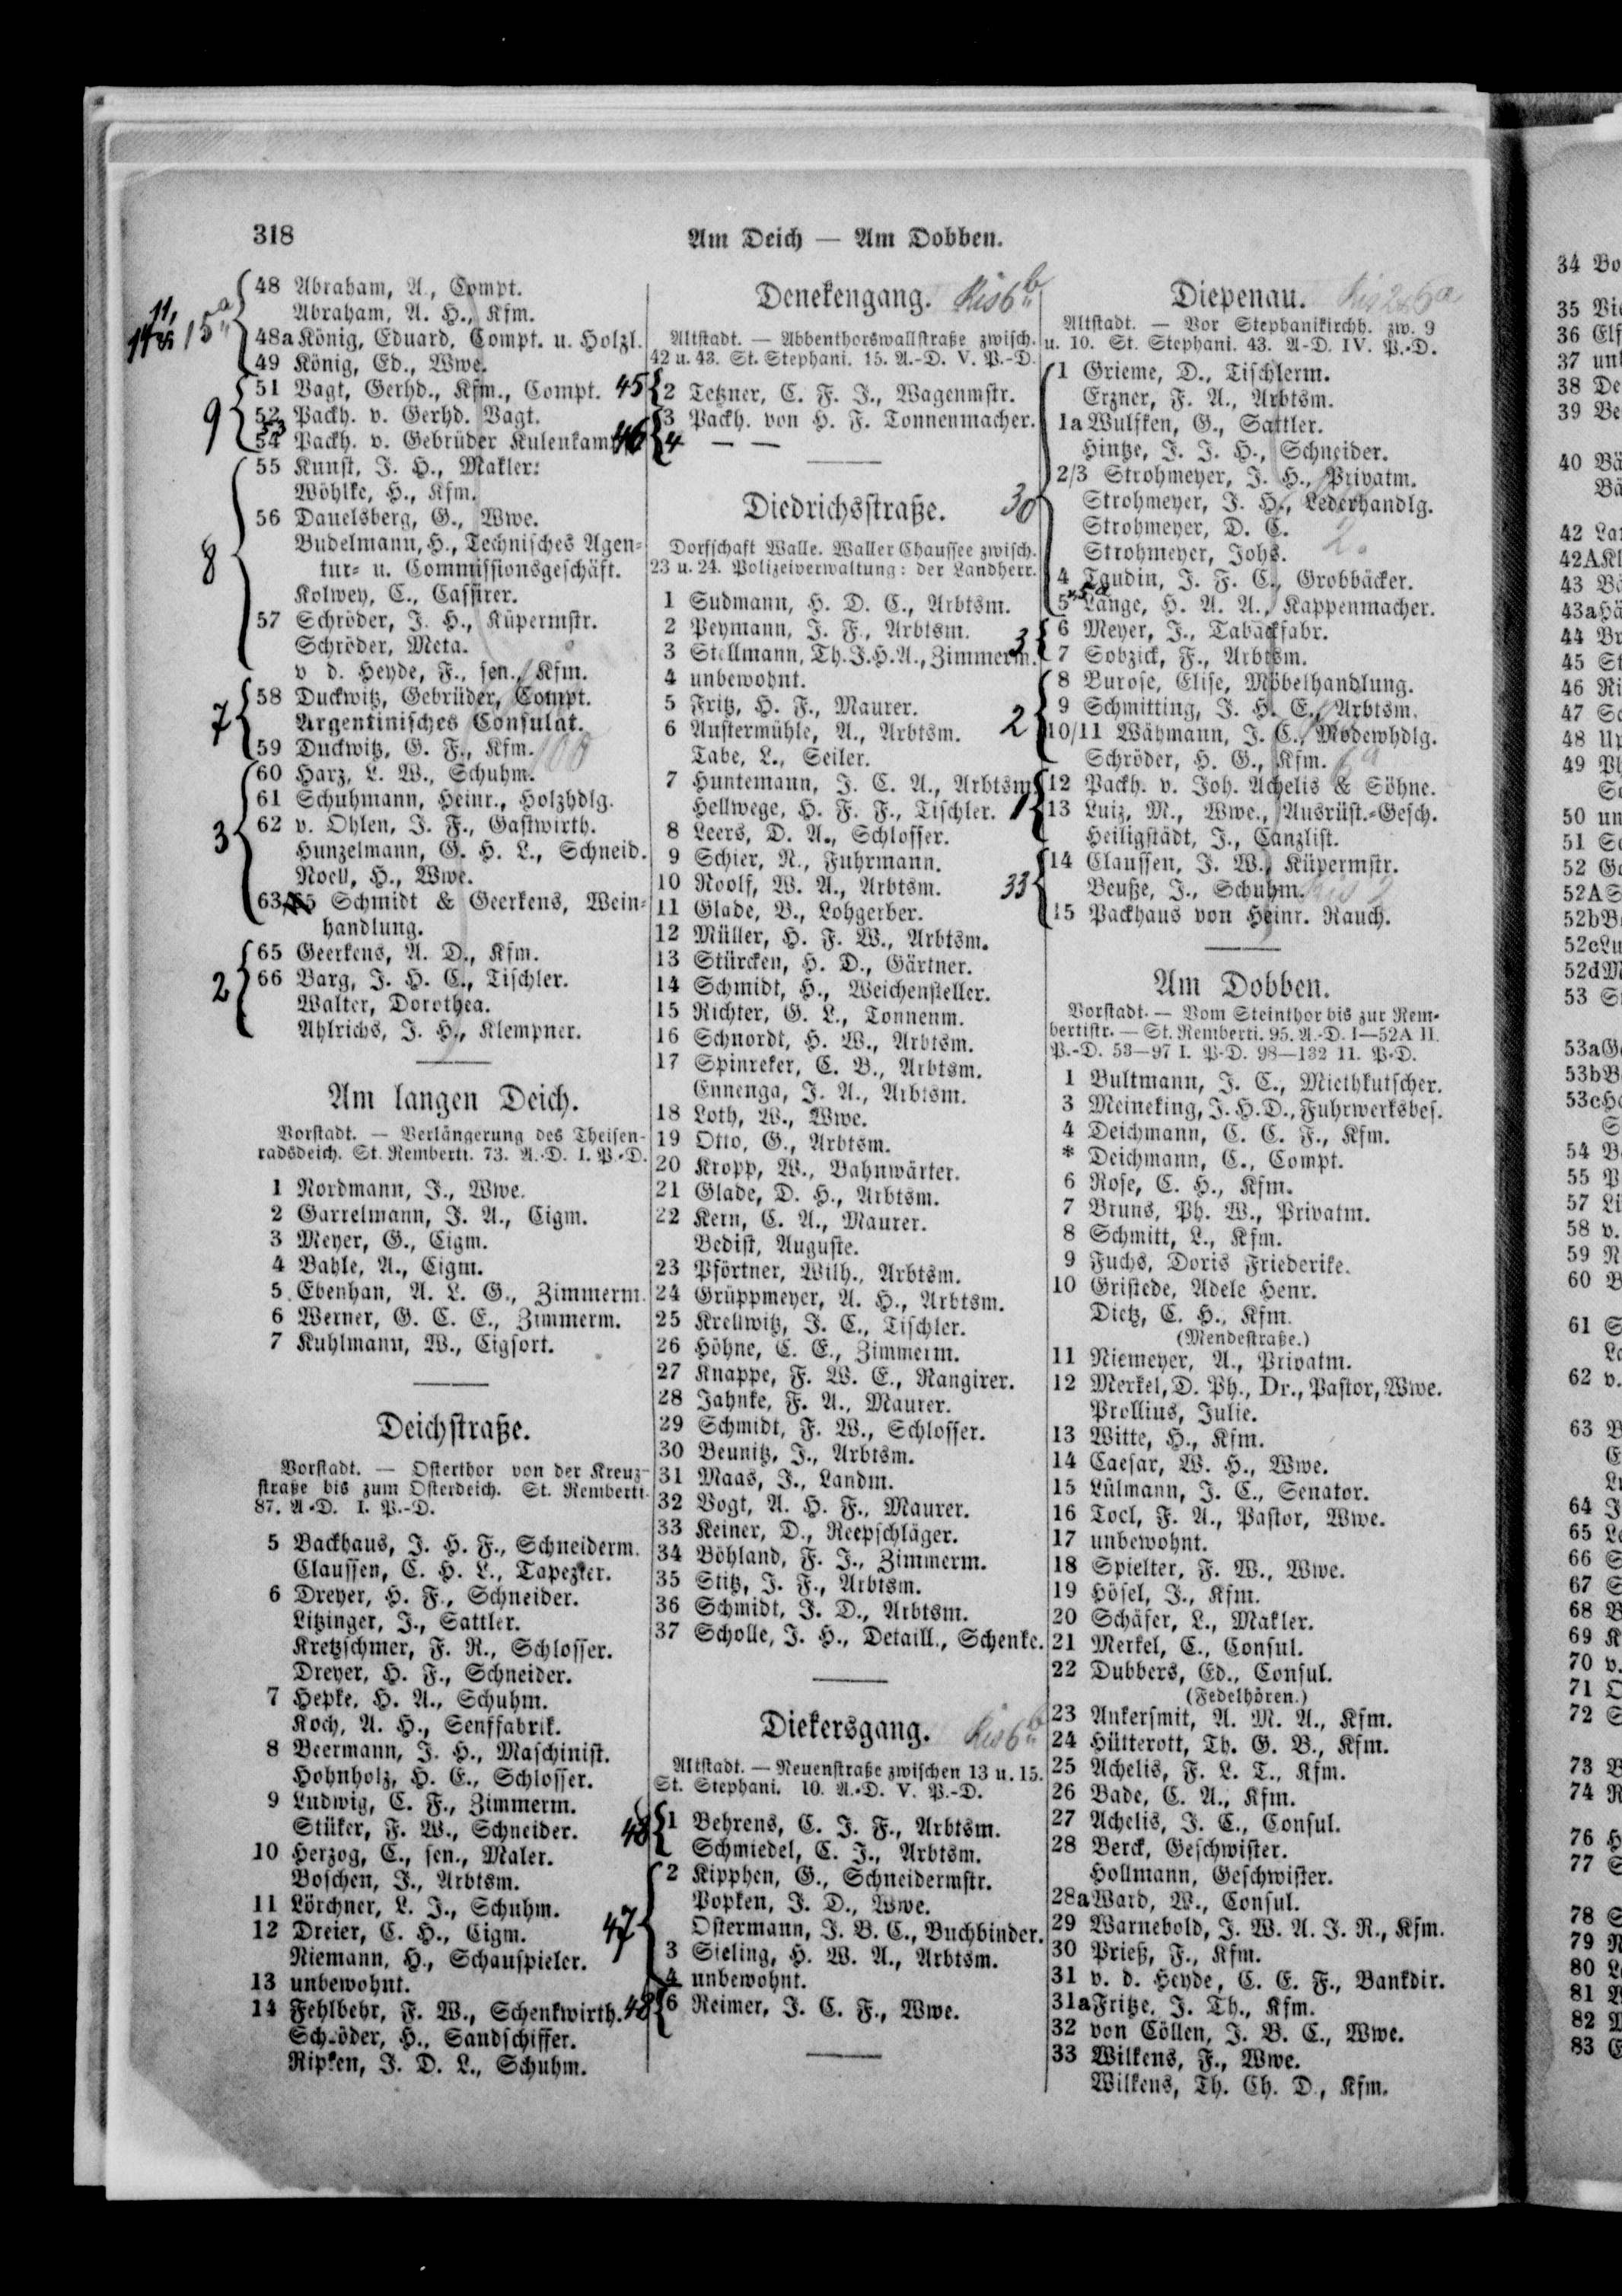 318
Am Deich — Am Dobben.
48 Abraham, A., Compt.
Abraham, A. H., Kfm.
48a König, Eduard, Compt. u. Holzl.
49 König, Ed., Wwe.
51 Vagt, Gerhd., Kfm., Compt.
52 Packh. v. Gerhd. Vagt.
54 Packh. v. Gebrüder Kulenkamp
55 Kunst, J. H., Makler.
Wöhlke, H., Kfm.
56 Dauelsberg, G., Wwe.
Budelmann, H., Technisches Agen-
tur- u. Commissionsgeschäft.
Kolwey, C., Cassirer.
57 Schröder, J. H., Küpermstr.
Schröder, Meta.
v d. Heyde, F., sen., Kfm.
58 Duckwitz, Gebrüder, Compt.
Argentinisches Consulat.
59 Duckwitz, G. F., Kfm.
60 Harz, L. W., Schuhm.
61 Schuhmann, Heinr., Holzhdlg.
62 v. Ohlen, J. F., Gastwirth.
Hunzelmann, G. H. L., Schneid.
Noell, H., Wwe.
63 Schmidt & Geerkens, Wein-
handlung.
65 Geerkens, A. D., Kfm.
66 Barg, J. H. C., Tischler.
Walter, Dorothea.
Ahlrichs, J. H., Klempner.
Am langen Deich.
Vorstadt. — Verlängerung des Theisen-
radsdeich. St. Remberti. 73. A.-D. I. P.-D.
1 Nordmann, J., Wwe.
2 Garrelmann, J. A., Cigm.
3 Meyer, G., Cigm.
4 Bahle, A., Cigm.
5 Ebenhan, A. L. G., Zimmerm.
6 Werner, G. C. E., Zimmerm.
7 Kuhlmann, W., Cigsort.
Deichstraße.
Vorstadt. — Osterthor von der Kreuz-
straße bis zum Osterdeich. St. Remberti.
87. A-D. I. P.-D.
5 Backhaus, J. H. F., Schneiderm.
Claussen, C. H. L., Tapezier.
6 Dreyer, H. F., Schneider.
Litzinger, J., Sattler.
Kretzschmer, F. R., Schlosser.
Dreyer, H. F., Schneider.
7 Hepke, H. A., Schuhm.
Koch, A. H., Senffabrik.
8 Beermann, J. H., Maschinist.
Hohnholz, H. E., Schlosser.
9 Ludwig, C. F., Zimmerm.
Stüker, F. W., Schneider.
10 Herzog, C., sen., Maler.
Boschen, J., Arbtsm.
11 Lörchner, L. J., Schuhm.
12 Dreier, C. H., Cigm.
Niemann, H., Schauspieler.
13 unbewohnt.
14 Fehlbehr, F. W., Schenkwirth.
Schröder, H., Sandschiffer.
Ripken, J. D. L., Schuhm.
Denekengang.
Altstadt. — Abbenthorswallstraße zwisch.
42 u. 43. St. Stephani. 15. A.-D. V. P.-D.
2 Tetzner, C. F. J., Wagenmstr.
3 Packh. von H. F. Tonnenmacher.
4 — —
Diedrichsstraße.
Dorfschaft Walle. Waller Chaussee zwisch.
23 u. 24. Polizeiverwaltung: der Landherr.
1 Sudmann, H. D. C., Arbtsm.
2 Peymann, J. F., Arbtsm.
3 Stellmann, Th. J. H. A., Zimmerm.
4 unbewohnt.
5 Fritz, H. F., Maurer.
6 Austermühle, A., Arbtsm.
Tabe, L., Seiler.
7 Huntemann, J. C. A., Arbtsm
Hellwege, H. F. F., Tischler.
8 Leers, D. A., Schlosser.
9 Schier, N., Fuhrmann.
10 Noolf, W. A., Arbtsm.
11 Glade, B., Lohgerber.
12 Müller, H. F. W., Arbtsm.
13 Stürcken, H. D., Gärtner.
14 Schmidt, H., Weichensteller.
15 Richter, G. L., Tonnenm.
16 Schnordt, H. W., Arbtsm.
17 Spinreker, C. B., Arbtsm.
Ennenga, J. A., Arbtsm.
18 Loth, W., Wwe.
19 Otto, G., Arbtsm.
20 Kropp, W., Bahnwärter.
21 Glade, D. H., Arbtsm.
22 Kern, C. A., Maurer.
Bedist, Auguste.
23 Pförtner, Wilh., Arbtsm.
24 Grüppmeyer, A. H., Arbtsm.
25 Krellwitz, J. C., Tischler.
26 Höhne, C. E., Zimmerm.
27 Knappe, F. W. E., Rangirer.
28 Jahnke, F. A., Maurer.
29 Schmidt, F. W., Schlosser.
30 Beunitz, J., Arbtsm.
31 Maas, J., Landm.
32 Vogt, A. H. F., Maurer.
33 Keiner, D., Reepschläger.
34 Böhland, F. J., Zimmerm.
35 Stitz, J. F., Arbtsm.
36 Schmidt, J. D., Arbtsm.
37 Scholle, J. H., Detaill., Schenke.
Diekersgang.
Altstadt. — Neuenstraße zwischen 13 u. 15.
St. Stephani. 10. A.-D. V. P.-D.
1 Behrens, C. J. F., Arbtsm.
Schmiedel, C. J., Arbtsm.
2 Kipphen, G., Schneidermstr.
Popken, J. D., Wwe.
Ostermann, J. B. C., Buchbinder.
3 Sieling, H. W. A., Arbtsm.
4 unbewohnt.
6 Reimer, J. C. F., Wwe.
Diepenau.
Altstadt. — Vor Stephanikirchh. zw. 9
u. 10. St. Stephani. 43. A-D. IV. P.-D.
1 Grieme, D., Tischlerm.
Erzner, F. A., Arbtsm.
1a Wulfken, G., Sattler.
Hintze, J. J. H., Schneider.
2/3 Strohmeyer, J. H., Privatm.
Strohmeyer, J. H., Lederhandlg.
Strohmeyer, D. C.
Strohmeyer, Johs.
4 Taudin, J. F. C., Grobbäcker.
5 Lange, H. A. A., Kappenmacher.
6 Meyer, J., Tabackfabr.
7 Sobzick, F., Arbtsm.
8 Burose, Elise, Möbelhandlung.
9 Schmitting, J. H. E., Arbtsm.
10/11 Wähmann, J. C., Modewhdlg.
Schröder, H. G., Kfm.
12 Packh. v. Joh. Achelis & Söhne.
13 Luiz, M., Wwe., Ausrüst.-Gesch.
Heiligstädt, J., Canzlist.
14 Claussen, J. W., Küpermstr.
Beuße, J., Schuhm.
15 Packhaus von Heinr. Rauch.
Am Dobben.
Vorstadt. — Vom Steinthor bis zur Rem-
bertistr. — St. Remberti. 95. A.-D. 1—52A II.
P.-D. 53—97 I. P-D. 98—132 11. P-D.
1 Bultmann, J. C., Miethkutscher.
3 Meineking, J. H. D., Fuhrwerksbes.
4 Deichmann, C. C. F., Kfm.
* Deichmann, C., Compt.
6 Rose, C. H., Kfm.
7 Bruns, Ph. W., Privatm.
8 Schmitt, L., Kfm.
9 Fuchs, Doris Friederike.
10 Gristede, Adele Henr.
Dietz, C. H., Kfm.
(Mendestraße.)
11 Niemeyer, A., Privatm.
12 Merkel, D. Ph., Dr., Pastor, Wwe.
Prollius, Julie.
13 Witte, H., Kfm.
14 Caesar, W. H., Wwe.
15 Lülmann, J. C., Senator.
16 Tocl, F. A., Pastor, Wwe.
17 unbewohnt.
18 Spielter, F. W., Wwe.
19 Hösel, J., Kfm.
20 Schäfer, L., Makler.
21 Merkel, C., Consul.
22 Dubbers, Ed., Consul.
(Fedelhören.)
23 Ankersmit, A. M. A., Kfm.
24 Hütterott, Th. G. B., Kfm.
25 Achelis, F. L. T., Kfm.
26 Bade, C. A., Kfm.
27 Achelis, J. C., Consul.
28 Berck, Geschwister.
Hollmann, Geschwister.
28a Ward, W., Consul.
29 Warnebold, J. W. A. J. R., Kfm.
30 Prieß, F., Kfm.
31 v. d. Heyde, C. E. F., Bankdir.
31a Fritze, J. Th., Kfm.
32 von Cöllen, J. B. C., Wwe.
33 Wilkens, F., Wwe.
Wilkens, Th. Ch. D., Kfm.
9
8
7
3
2
45
46
30
3
2
1
33
48
47
48
34
35
36
37
38
39
40
42
42A
43
43a
44
45
46
47
48
49
50
51
52
52A
52b
52c
52d
53
53a
53b
53c
54
55
57
58
59
60
61
62
63
64
65
66
67
68
69
70
71
72
73
74
76
77
78
79
80
81
82
83